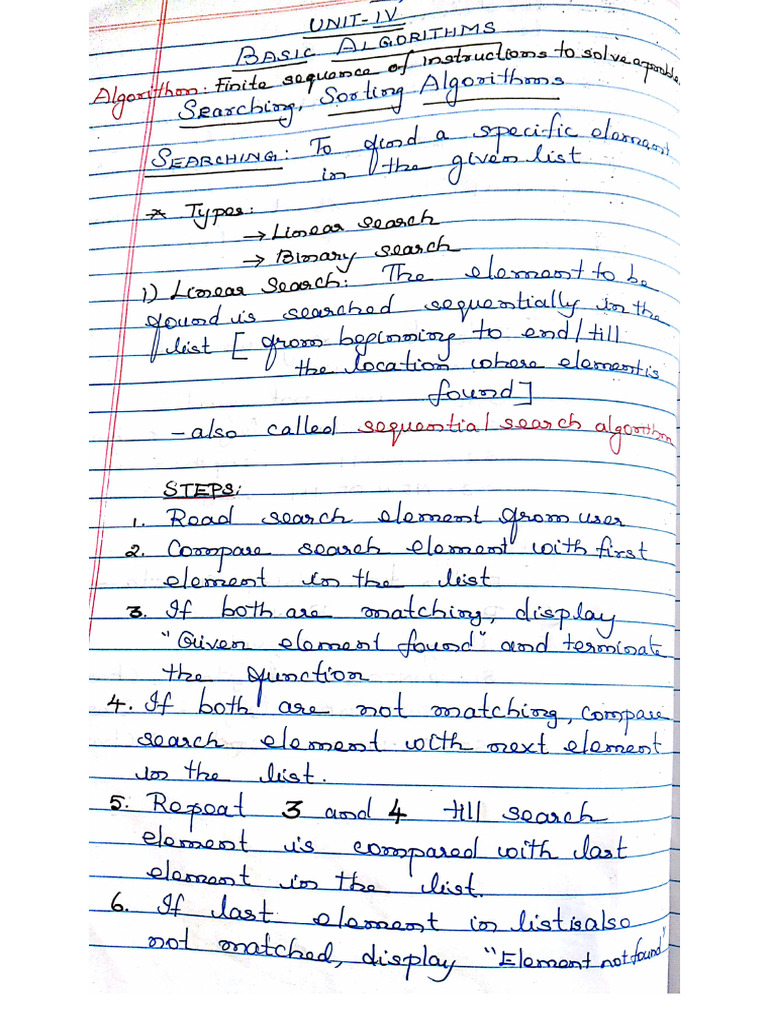 UNIT-IV
BASIC ALGORITHMS
Algorithm: Finite sequence of instructions to solve a problem
Searching, Sorting Algorithms
SEARCHING: To find a specific element
in the given list
* Types:
→ Linear search
→ Binary search
1) Linear Search: The element to be
found is searched sequentially in the
list [from beginning to end/till
the location where element is
found]
- also called sequential search algorithm
STEPS:
1. Read search element from user
2. Compare search element with first
element in the list
3. If both are matching, display
"Given element found" and terminate
the function
4. If both are not matching, compare
search element with next element
in the list.
5. Repeat 3 and 4 till search
element is compared with last
element in the list.
6. If last element in list is also
not matched, display "Element not found"